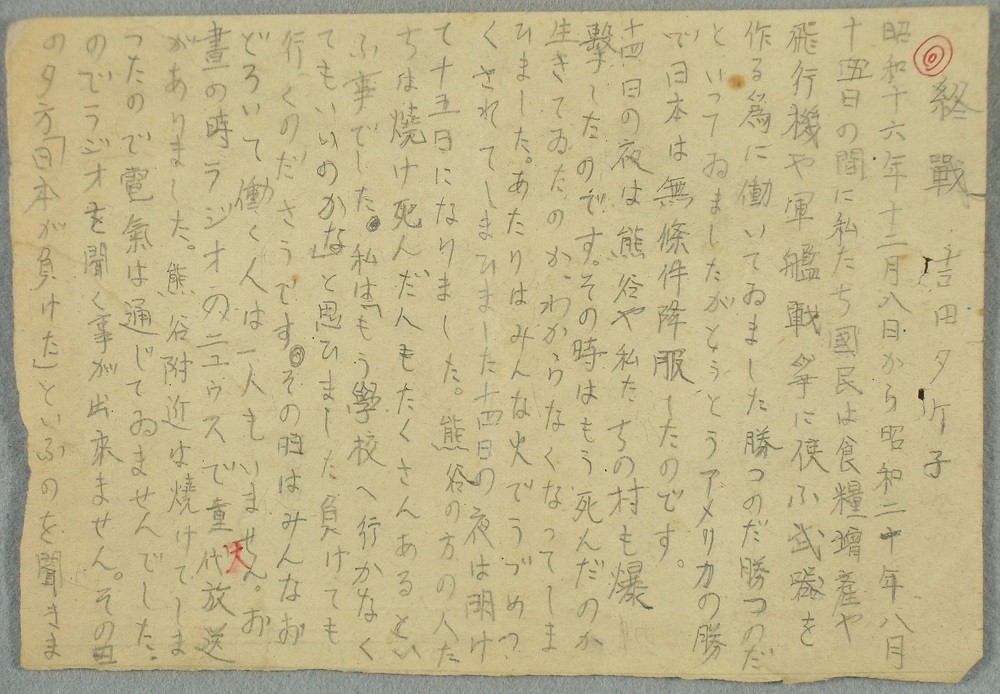 終戰 吉田タケ子
昭和十六年十二月八日から昭和二十年八月
十五日の間に私たち國民は食糧增産や
飛行機や軍艦戰爭に使ふ武器を
作る爲に働いてゐました勝つのだ勝つのだ
といってゐましたがとうとうアメリカの勝
で日本は無條件降服したのです。
十四日の夜は熊谷や私たちの村も爆
擊したのです。その時はもう死んだのか
生きてゐたのか、わからなくなってしま
ひました。あたりはみんな火でうづめつ
くされてしまひました十四日の夜は明け
て十五日になりました。熊谷の方の人た
ちは燒け死んだ人もたくさんあるとい
ふ事でした。私は「もう學校へ行かなく
てもいいのかな」と思ひました負けても
行くのださうです。その時はみんなお
どろいて働く人は一人もいません。お
晝の時ラジオのニュウスで重大代放送
がありました。熊谷附近は燒けてしま
つたので電氣は通じてゐませんでした。
のでラジオを聞く事が出來ません。その日
の夕方「日本が負けた」といふのを聞きま